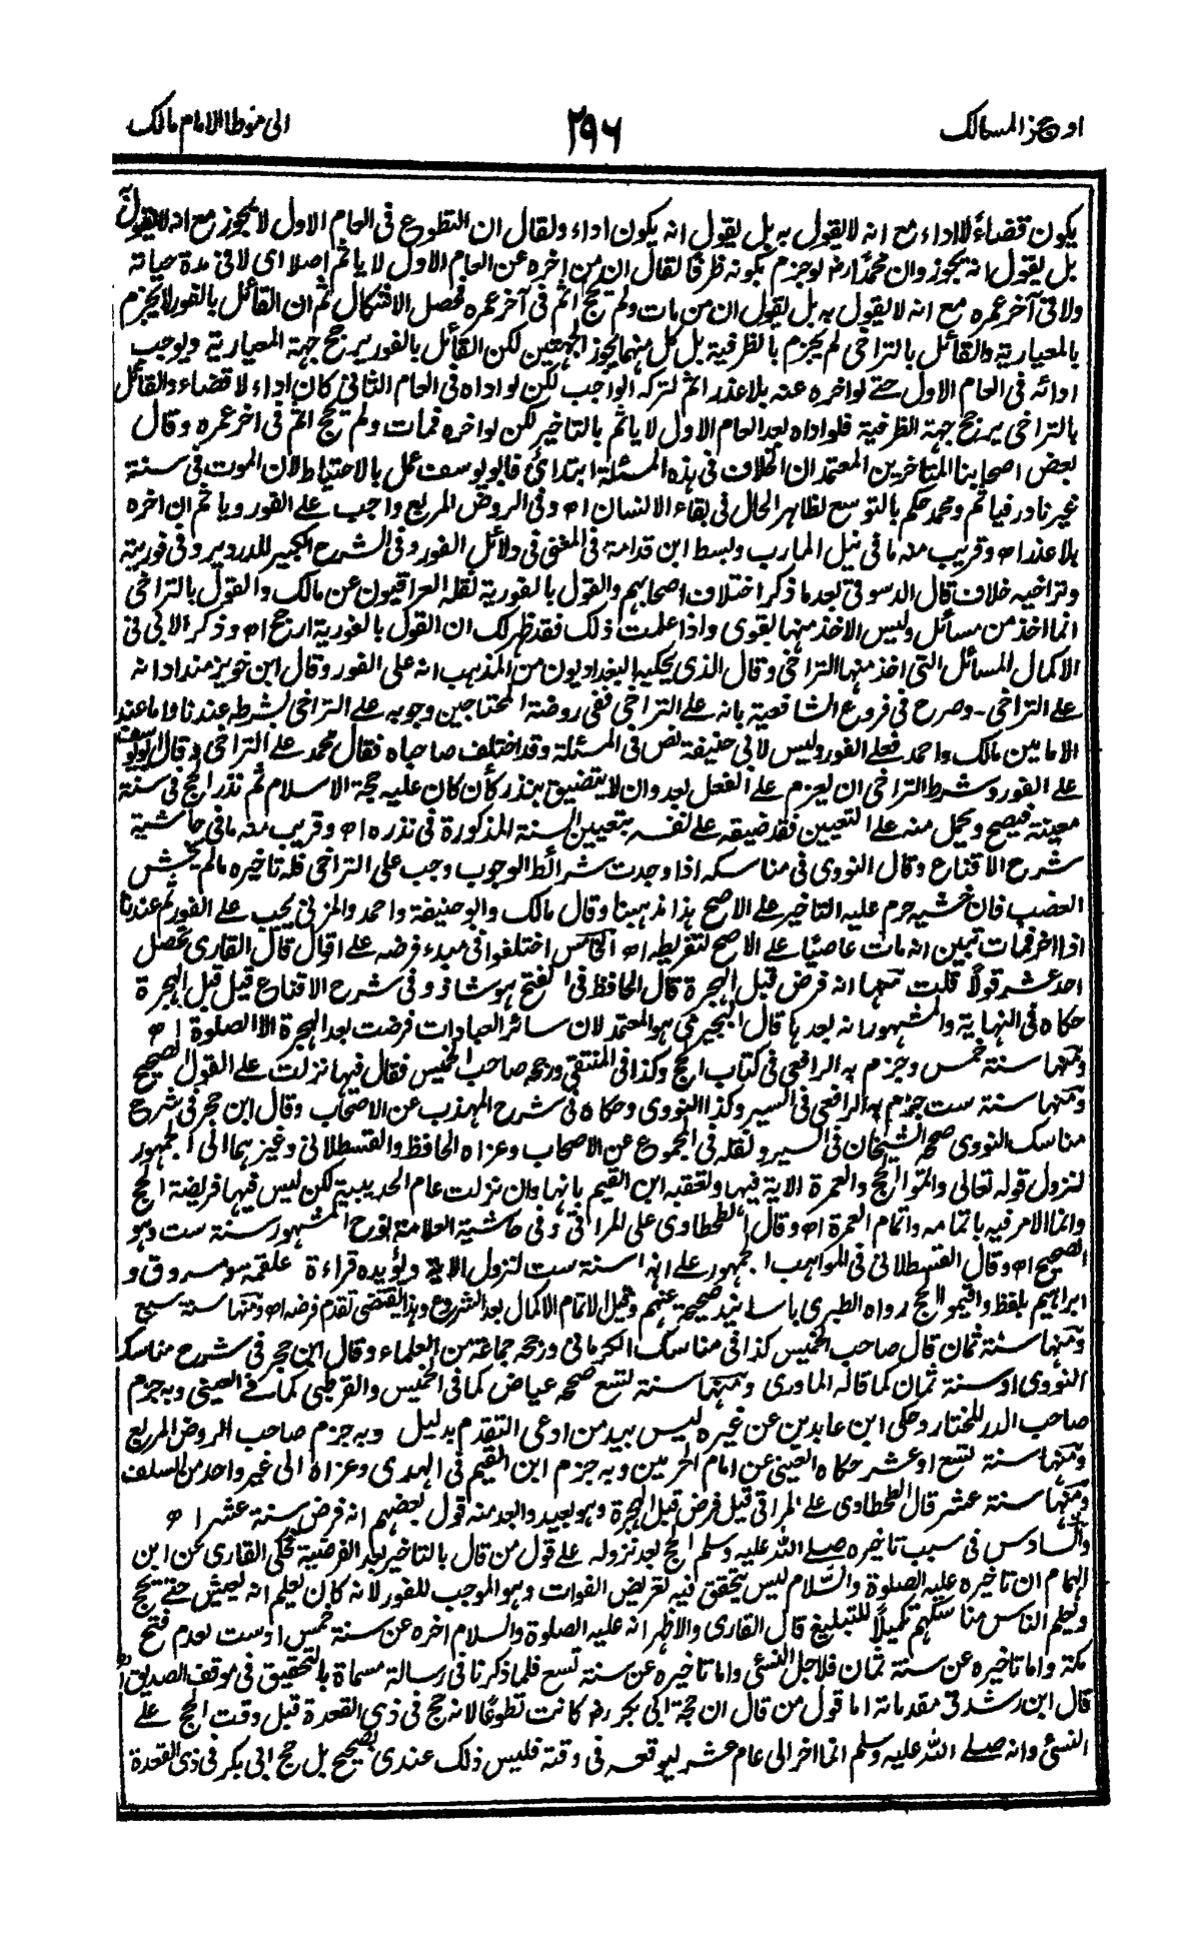 اوجز المسالك
٢٩٦
الى موطا الامام مالك
يكون قضاءً لا اداء مع انه لا يقول به بل يقول انه يكون اداء ولقال ان التطوع فى العام الاول لا يجوز مع انه لا يقول
بل يقول انه يجوز وان محمدًا رض لو جزم بكونه ظرفًا لقال ان من اخره عن العام الاول لا ياثم اصلا اى لا فى مدة حياته
ولا فى آخر عمره مع انه لا يقول به بل يقول ان من مات ولم يحج اثم فى آخر عمره فحصل الاشكال ثم ان القائل بالفور لا يجزم
بالمعيارية والقائل بالتراخى لم يجزم بالظرفية بل كل منهما يجوز الجهتين لكن القائل بالفور يرجح جهة المعيارية ويوجب
ادائه فى العام الاول حتے لو اخره عنه بلا عذر اثم لتركه الواجب لكن لو اداه فى العام الثانى كان اداء لا قضاء والقائل
بالتراخى يرجح جهة الظرفية فلو اداه بعد العام الاول لا ياثم بالتاخير لكن لو اخره فمات ولم يحج اثم فى اخر عمره وقال
بعض اصحابنا المتاخرين المعتمد ان الخلاف فى هذه المسئلة ابتدائى فابو يوسف عمل بالاحتياط لان الموت فى سنة
غير نادر فياثم ومحمد حكم بالتوسع لظاهر الحال فى بقاء الانسان اھ وفى الروض المربع واجب علے الفور وياثم ان اخره
بلا عذر اھ وقريب منه ما فى نيل المارب وبسط ابن قدامة فى المغنى فى دلائل الفور وفى الشرح الكبير للدردير وفى فوريته
وتراخيه خلاف قال الدسوقى بعد ما ذكر اختلاف اصحابهم والقول بالفورية نقله العراقيون عن مالك والقول بالتراخى
انما اخذ من مسائل وليس الاخذ منها بقوى واذا علمت ذلك فقد ظهر لك ان القول بالفورية ارجح اھ وذكر الابى فى
الاكمال المسائل التى اخذ منها التراخى وقال الذى يحكيه البغداديون من المذهب انه على الفور وقال ابن خويز منداد انه
علے التراخى ـ وصرح فى فروع الشافعية بانه علے التراخى ففى روضة المحتاجين وجوبه علے التراخى بشرطه عندنا واما عند
الامامين مالك واحمد فعلے الفور وليس لابى حنيفة نص فى المسئلة وقد اختلف صاحباه فقال محمد علے التراخى وقال ابو يوسف
علے الفور وشرط التراخى ان يعزم علے الفعل بعد وان لا يتضيق بنذر كأن كان عليه حجة الاسلام ثم نذر الحج فى سنة
معينة فيصح ويحمل منه علے التعيين فقد ضيقه علے نفسه بتعيين السنة المذكورة فى نذره اھ وقريب منه ما فى حاشية
شرح الاقناع وقال النووى فى مناسكه اذا وجدت شرائط الوجوب وجب على التراخى فله تاخيره مالم يخش
العضب فان خشيه حرم عليه التاخير علے الاصح هذا مذهبنا وقال مالك وابو حنيفة واحمد والمزنى يجب علے الفور ثم عندنا
اذا اخر فمات تبين انه مات عاصيًا علے الاصح لتفريطه اھ الخامس اختلفوا فى مبدء فرضه علے اقوال قال القارى تحصل
احد عشر قولاً قلت منها انه فرض قبل الهجرة قال الحافظ فى الفتح هو شاذ وفى شرح الاقناع قيل قبل الهجرة
حكاه فى النهاية والمشهور انه بعدها قال البجيرمى هو المعتمد لان سائر العبادات فرضت بعد الهجرة الا الصلوة اھ
ومنها سنة خمس وجزم به الرافعى فى كتاب الحج وكذا فى المنتقى ورجحه صاحب الخميس فقال فيها نزلت علے القول الصحيح
ومنها سنة ست جزم به الرافعى فى السير وكذا النووى وحكاه فى شرح المهذب عن الاصحاب وقال ابن حجر فى شرح
مناسك النووى صححه الشيخان فى السير ونقله فى المجموع عن الاصحاب وعزاه الحافظ والقسطلانى وغيرهما الى الجمهور
لنزول قوله تعالى واتموا الحج والعمرة الاية فيها وتعقبه ابن القيم بانها وان نزلت عام الحديبية لكن ليس فيها فريضة الحج
وانما الامر فيه باتمامه واتمام العمرة اھ وقال الطحطاوى على المراقى وفى حاشية العلامة نوح المشهور سنة ست وهو
الصحيح اھ وقال القسطلانى فى المواهب الجمهور علے انها سنة ست لنزول الاية ويؤيده قراءة علقمة ومسروق و
ابراهيم بلفظ واقيموا الحج رواه الطبرى باسانيد صحيحة عنهم وقيل الاتمام الاكمال بعد الشروع وهذا يقتضى تقدم فرضه اھ ومنها سنة سبع
ومنها سنة ثمان قال صاحب الخميس كذا فى مناسك الكرمانى ورجحه جماعة من العلماء وقال ابن حجر فى شرح مناسك
النووى او سنة ثمان كما قاله الماوردى ومنها سنة تسع صححه عياض كما فى الخميس والقرطبى كما فے العينى وبه جزم
صاحب الدر المختار وحكى ابن عابدين عن غيره ليس بيد من ادعى التقدم بدليل وبه جزم صاحب الروض المربع
ومنها سنة تسع او عشر حكاه العينى عن امام الحرمين وبه جزم ابن القيم فى الهدى وعزاه الى غير واحد من السلف
ومنها سنة عشر قال الطحطاوى علے المراقى قيل فرض قبل الهجرة وهو بعيد وابعد منه قول بعضهم انه فرض سنة عشر اھ
والسادس فى سبب تاخيره صلے الله عليه وسلم الحج بعد نزوله علے قول من قال بالتاخير بعد الفرضية فحكى القارى عن ابن
الهمام ان تاخيره عليه الصلوة والسلام ليس يتحقق فيه تعريض الفوات وهو الموجب للفور لانه كان يعلم انه يعيش حتے يحج
ويعلم الناس مناسكهم تكميلاً للتبليغ قال القارى والاظهر انه عليه الصلوة والسلام اخره عن سنة خمس او ست لعدم فتح
مكة واما تاخيره عن سنة ثمان فلاجل النسئى واما تاخيره عن سنة تسع فلما ذكرنا فى رسالة مسماة بالتحقيق فى موقف الصديق اھ
قال ابن رشد فى مقدماته اما قول من قال ان حجة ابى بكر رض كانت تطوعًا لانه حج فى ذى القعدة قبل وقت الحج علے
النسئى وانه صلے الله عليه وسلم انما اخر الى عام عشر ليوقعه فى وقته فليس ذلك عندى بصحيح بل حج ابى بكر فى ذى القعدة